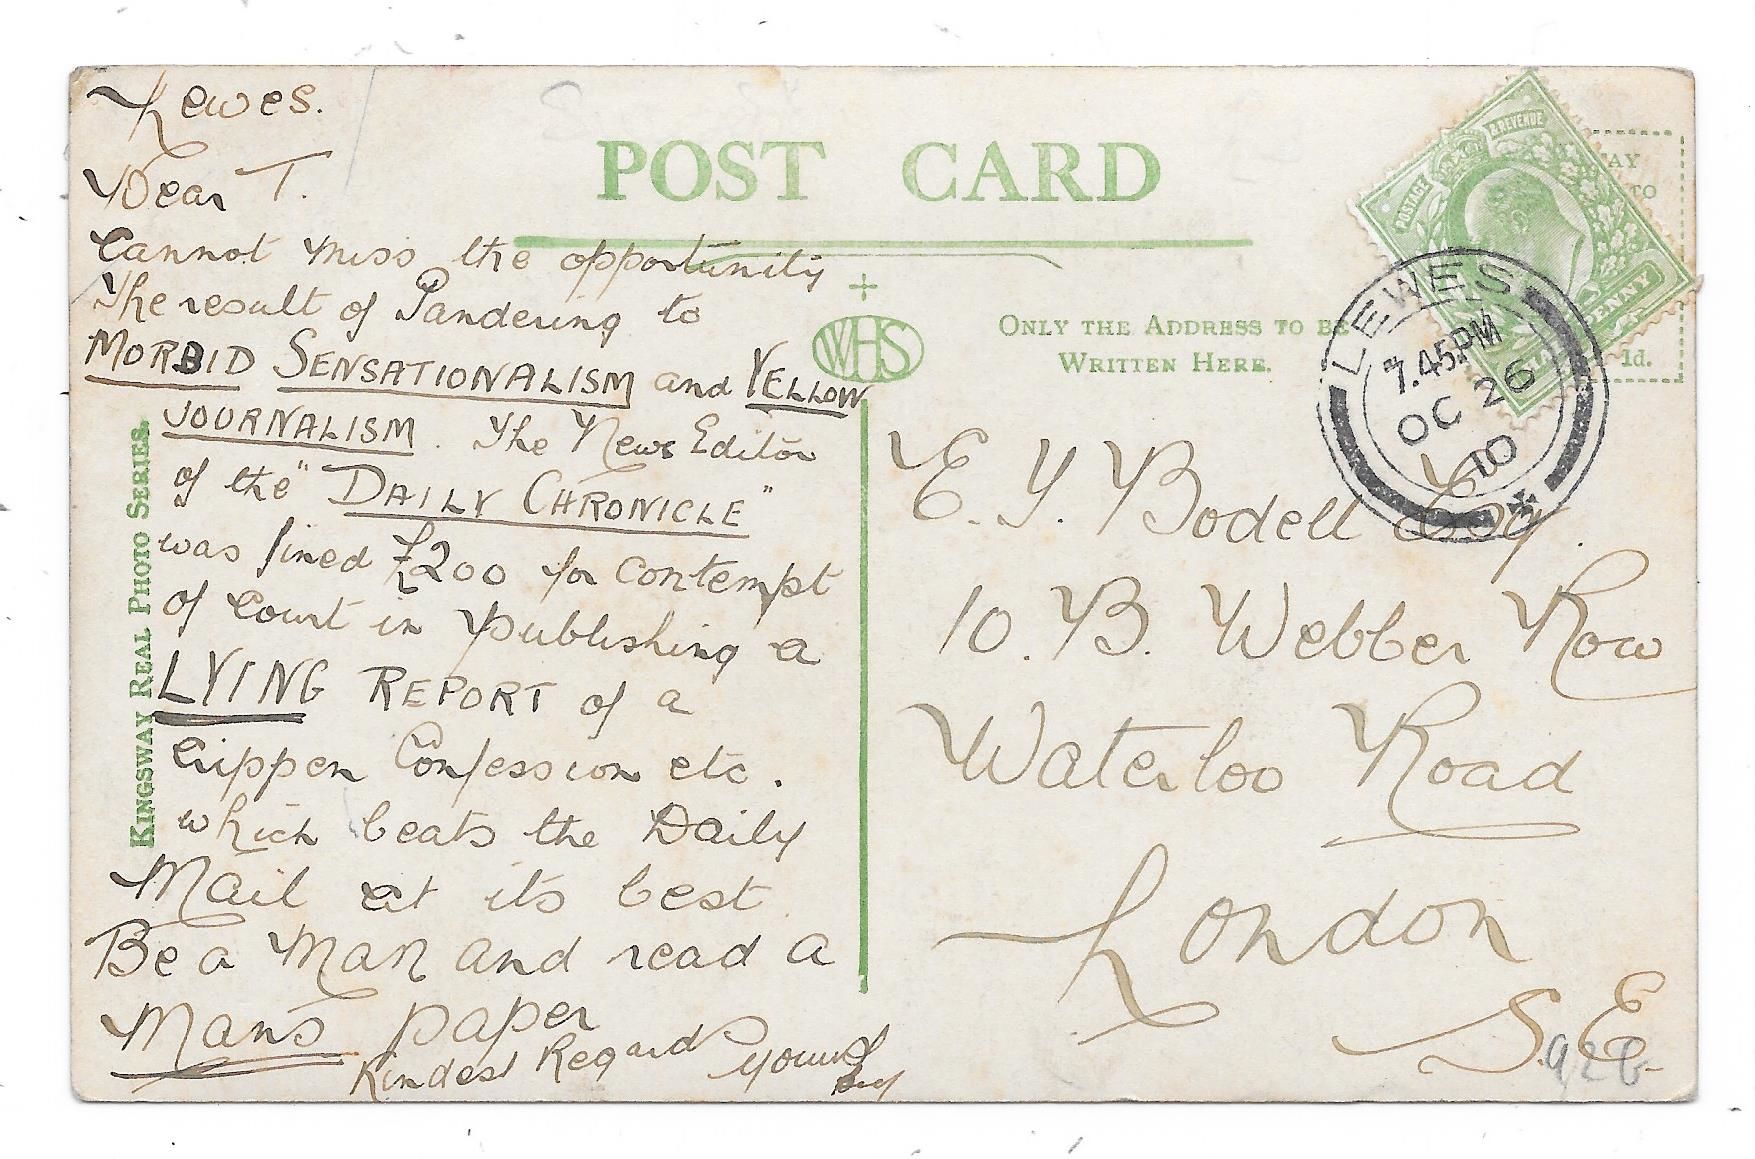 Lewes.
Dear T.
Cannot miss the opportunity
The result of Pandering to
MORBID SENSATIONALISM and YELLOW
JOURNALISM. The News Editor
of the "DAILY CHRONICLE"
was fined £200 for contempt
of court in publishing a
LYING REPORT of a
Crippen Confession etc.
which beats the Daily
Mail at its best.
Be a Man and read a
Mans paper
Kindest Regards yours
KINGSWAY REAL PHOTO SERIES.
POST CARD
WHS
ONLY THE ADDRESS TO BE
WRITTEN HERE.
POSTAGE & REVENUE
PENNY
AY
TO
1d.
LEWES
7.45PM
OC 26
10
E. Y. Bodell Esq.
10. B. Webber Row
Waterloo Road
London
S.E.